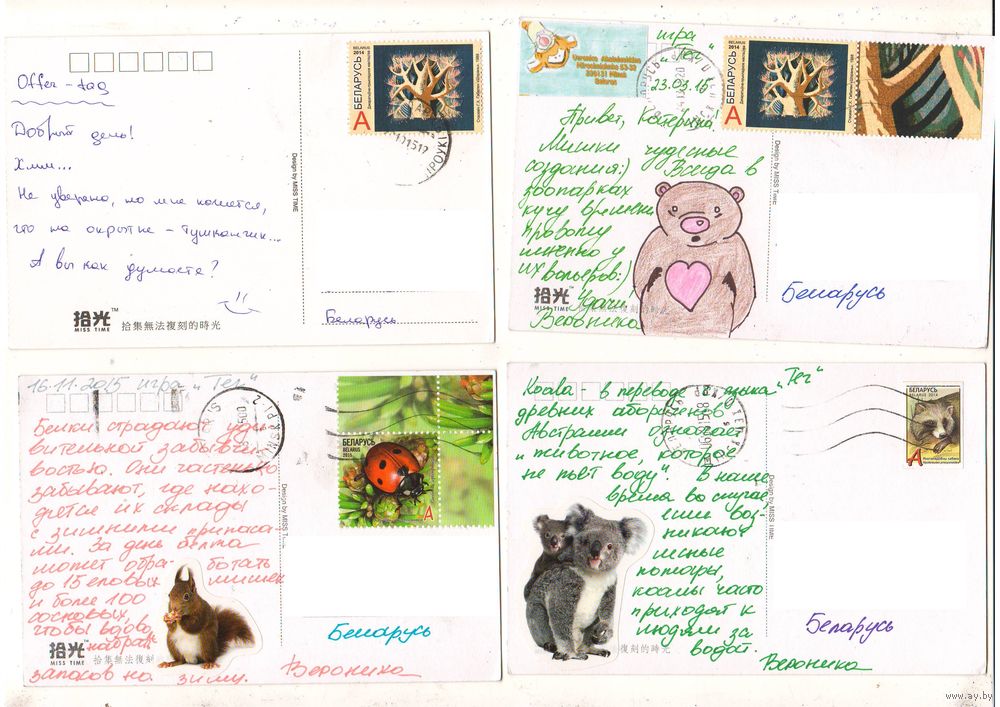 Offer-tag
Добрый день!
Хмм...
Не уверена, но мне кажется,
что на открытке - тушканчик...
А вы как думаете?
Беларусь
拾光™
MISS TIME
拾集無法復刻的時光
Design by MISS TIME
БЕЛАРУСЬ
BELARUS
2014
A
игра
"Тег"
23.03.15
Привет, Катерина!
Мишки чудесные
создания:) Всегда в
зоопарках
кучу времени
провожу
именно у
их вольеров:)
Удачи!
Вероника
Беларусь
拾光™
MISS TIME
Design by MISS TIME
БЕЛАРУСЬ
2014
A
16.11.2015 игра "Тег"
Белки страдают уди-
вительной забывчи-
востью. Они частенько
забывают, где нахо-
дятся их склады
с зимними припаса-
ми. За день белка
может обра- ботать
до 15 еловых шишек
и более 100
сосновых,
чтобы вдово
набрать
запасов на зиму.
Вероника
Беларусь
拾光™
MISS TIME
拾集無法復刻
Design by MISS TIME
БЕЛАРУСЬ
BELARUS
2015
A
Koala - в переводе с языка "Тег"
древних аборигенов
Австралии означает
"животное, которое
не пьёт воду". В наше
время во случае,
если воз-
никают
лесные
пожары,
коалы часто
приходят к
людям за
водой.
Вероника
Беларусь
復刻的時光
Design by MISS TIME
БЕЛАРУСЬ
BELARUS 2014
A
www.ay.by